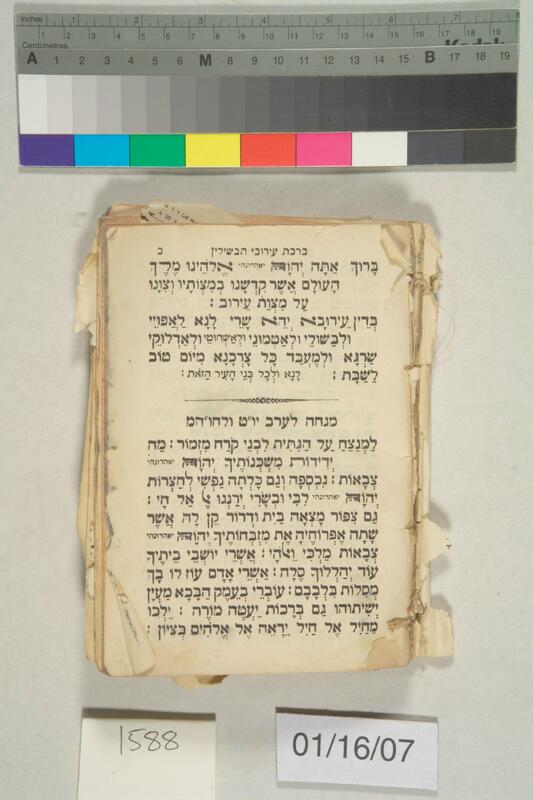 Inches 1 2 3 4 5 6 7 8
Centimetres 1 2 3 4 5 6 7 8 9 10 11 12 13 14 15 16 17 18 19
A 1 2 3 4 5 6 M 8 9 10 11 12 13 14 15 B 17 18 19
ברכת עירובי תבשילין ב
בָּרוּךְ אַתָּה יְהוָה יאהדונהי אֱלֹהֵינוּ מֶלֶךְ
הָעוֹלָם אֲשֶׁר קִדְּשָׁנוּ בְּמִצְוֹתָיו וְצִוָּנוּ
עַל מִצְוַת עֵירוּב :
בְּדֵין עֵירוּבָא יְהֵא שָׁרֵי לָנָא לַאֲפוּיֵי
וּלְבַשּׁוּלֵי וּלְאַטְמוּנֵי וּלְאַשְׁחוּטֵי וּלְאַדְלוּקֵי
שְׁרָגָא וּלְמֶעְבַּד כָּל צָרְכָנָא מִיּוֹם טוֹב
לַשַּׁבָּת : לָנָא וּלְכָל בְּנֵי הָעִיר הַזֹּאת :
מנחה לערב יו״ט ולחו״המ
לַמְנַצֵּחַ עַל הַגִּתִּית לִבְנֵי קֹרַח מִזְמוֹר : מַה
יְּדִידוֹת מִשְׁכְּנוֹתֶיךָ יְהוָה יאהדונהי
צְבָאוֹת : נִכְסְפָה וְגַם כָּלְתָה נַפְשִׁי לְחַצְרוֹת
יְהוָה יאהדונהי לִבִּי וּבְשָׂרִי יְרַנְּנוּ אֶל אֵל חָי :
גַּם צִפּוֹר מָצְאָה בַיִת וּדְרוֹר קֵן לָהּ אֲשֶׁר
שָׁתָה אֶפְרוֹחֶיהָ אֶת מִזְבְּחוֹתֶיךָ יְהוָה יאהדונהי
צְבָאוֹת מַלְכִּי וֵאלֹהָי : אַשְׁרֵי יוֹשְׁבֵי בֵיתֶיךָ
עוֹד יְהַלְלוּךָ סֶּלָה : אַשְׁרֵי אָדָם עוֹז לוֹ בָךְ
מְסִלּוֹת בִּלְבָבָם : עוֹבְרֵי בְּעֵמֶק הַבָּכָא מַעְיָן
יְשִׁיתוּהוּ גַּם בְּרָכוֹת יַעְטֶה מוֹרֶה : יֵלְכוּ
מֵחַיִל אֶל חָיִל יֵרָאֶה אֶל אֱלֹהִים בְּצִיּוֹן :
1588
01/16/07